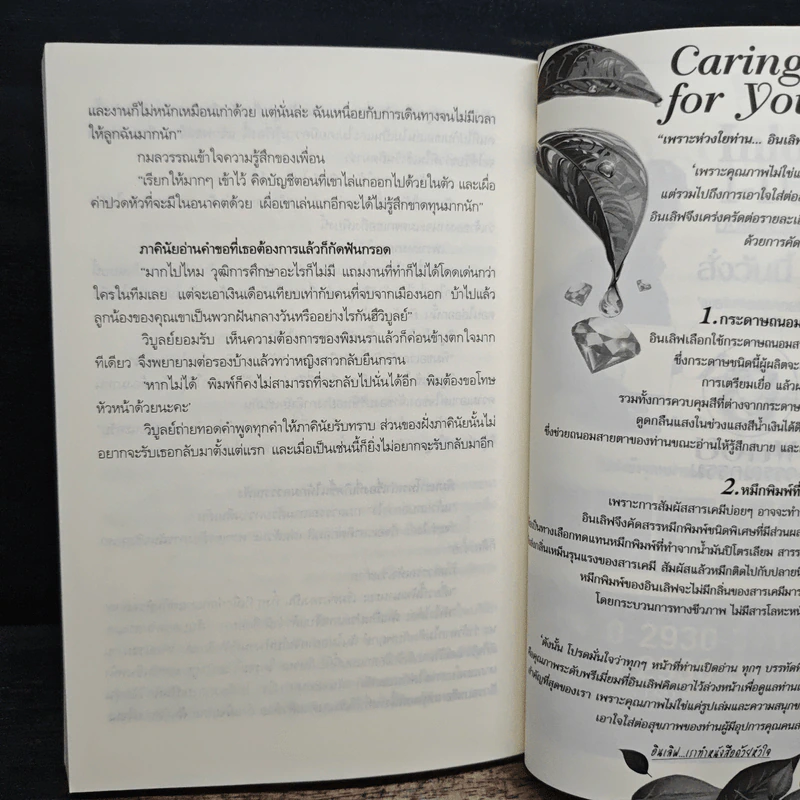 และงานก็ไม่หนักเหมือนเก่าด้วย แต่นั่นล่ะ ฉันเหนื่อยกับการเดินทางจนไม่มีเวลา
ให้ลูกฉันมากนัก”
กมลวรรณเข้าใจความรู้สึกของเพื่อน
“เรียกให้มากๆ เข้าไว้ คิดบัญชีตอนที่เขาไล่แกออกไปด้วยในตัว และเผื่อ
ค่าปวดหัวที่จะมีในอนาคตด้วย เผื่อเขาเล่นแกอีกจะได้ไม่รู้สึกขาดทุนมากนัก”
ภาคินัยอ่านคำขอที่เธอต้องการแล้วก็กัดฟันกรอด
“มากไปไหม วุฒิการศึกษาอะไรก็ไม่มี แถมงานที่ทำก็ไม่ได้โดดเด่นกว่า
ใครในทีมเลย แต่จะเอาเงินเดือนเทียบเท่ากับคนที่จบจากเมืองนอก บ้าไปแล้ว
ลูกน้องของคุณเขาเป็นพวกฝันกลางวันหรืออย่างไรกันฮึวิบูลย์”
วิบูลย์ยอมรับ เห็นความต้องการของพิมนราแล้วก็ค่อนข้างตกใจมาก
ทีเดียว จึงพยายามต่อรองบ้างแล้วทว่าหญิงสาวกลับยืนกราน
‘หากไม่ได้ พิมพ์ก็คงไม่สามารถที่จะกลับไปนั่นได้อีก พิมต้องขอโทษ
หัวหน้าด้วยนะคะ’
วิบูลย์ถ่ายทอดคำพูดทุกคำให้ภาคินัยรับทราบ ส่วนของฝั่งภาคินัยนั้นไม่
อยากจะรับเธอกลับมาตั้งแต่แรก และเมื่อเป็นเช่นนี้ก็ยิ่งไม่อยากจะรับกลับมาอีก
Caring
for You
“เพราะห่วงใยท่าน... อินเลิฟ
‘เพราะคุณภาพไม่ใช่แ
แต่รวมไปถึงการเอาใจใส่ต่อส
อินเลิฟจึงเคร่งครัดต่อรายละเอี
ด้วยการคัด
1.กระดาษถนอม
อินเลิฟเลือกใช้กระดาษถนอมส
ซึ่งกระดาษชนิดนี้ผู้ผลิตจะ
การเตรียมเยื่อ แล้วผ
รวมทั้งการควบคุมสีที่ต่างจากกระดาษ
ดูดกลืนแสงในช่วงแสงสีน้ำเงินได้ดี
ซึ่งช่วยถนอมสายตาของท่านขณะอ่านให้รู้สึกสบาย และ
2.หมึกพิมพ์ที่
เพราะการสัมผัสสารเคมีบ่อยๆ อาจจะทำ
อินเลิฟจึงคัดสรรหมึกพิมพ์ชนิดพิเศษที่มีส่วนผส
เป็นทางเลือกทดแทนหมึกพิมพ์ที่ทำจากน้ำมันปิโตรเลียม สารร
กลิ่นเหม็นรุนแรงของสารเคมี สัมผัสแล้วหมึกติดไปกับปลายนิ
หมึกพิมพ์ของอินเลิฟจะไม่มีกลิ่นของสารเคมีมาร
โดยกระบวนการทางชีวภาพ ไม่มีสารโลหะหนั
‘ดังนั้น โปรดมั่นใจว่าทุกๆ หน้าที่ท่านเปิดอ่าน ทุกๆ บรรทัดที่
คุณภาพระดับพรีเมี่ยมที่อินเลิฟคิดเอาไว้ล่วงหน้าเพื่อดูแลท่านแ
สำคัญที่สุดของเรา เพราะคุณภาพไม่ใช่แค่รูปเล่มและความสนุกข
เอาใจใส่ต่อสุขภาพของท่านผู้มีอุปการคุณคนส
อินเลิฟ...เราทำหนังสือด้วยหัวใจ